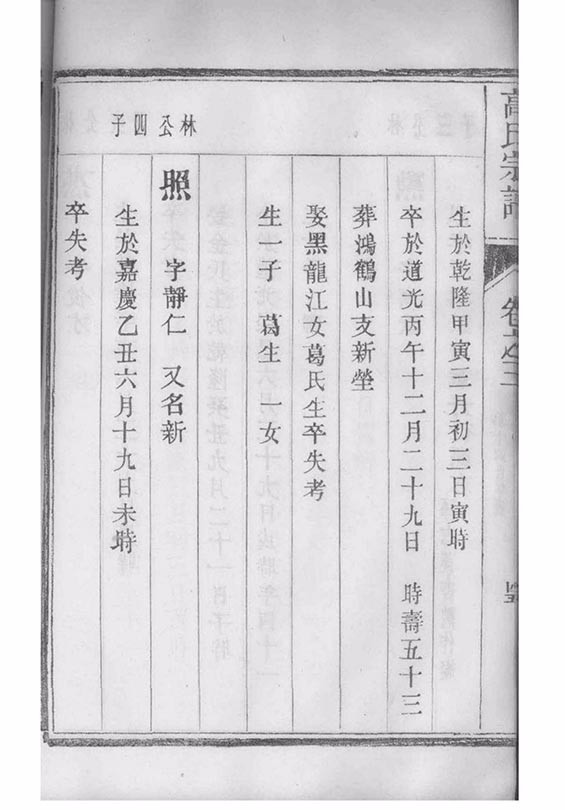 高氏宗譜
生於乾隆甲寅三月初三日寅時
卒於道光丙午十二月二十九日　時壽五十三
葬鴻鶴山支新塋
娶黑龍江女葛氏生卒失考
生一子　葛生　一女
林公四子
照　字靜仁　又名新
生於嘉慶乙丑六月十九日未時
卒失考